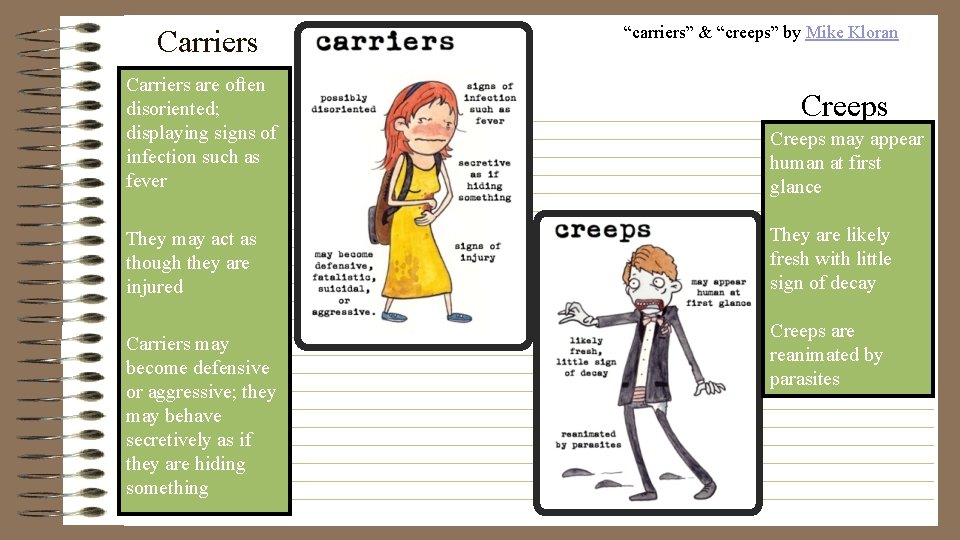 Carriers
Carriers are often
disoriented;
displaying signs of
infection such as
fever
They may act as
though they are
injured
Carriers may
become defensive
or aggressive; they
may behave
secretively as if
they are hiding
something
carriers
possibly
disoriented
signs of
infection
such as
fever
secretive
as if
hiding
something
may become
defensive,
fatalistic,
suicidal,
or
aggressive.
signs of
injury
“carriers” & “creeps” by Mike Kloran
creeps
may appear
human at
first glance
likely
fresh,
little sign
of decay
reanimated
by parasites
Creeps
Creeps may appear
human at first
glance
They are likely
fresh with little
sign of decay
Creeps are
reanimated by
parasites